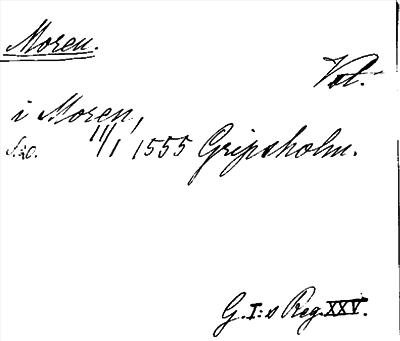 Moren.
Vet.
i Moren,
11/1 1555 Gripsholm.
G. I:s Reg. XXV.